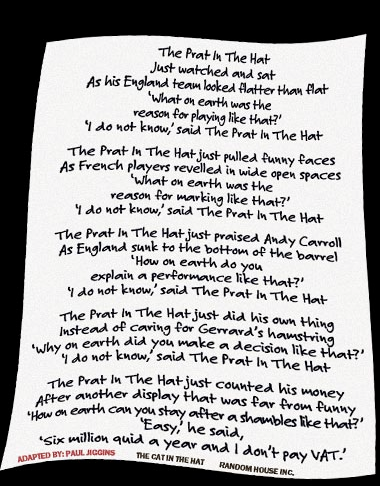 The Prat In The Hat
Just watched and sat
As his England team looked flatter than flat
'What on earth was the
reason for playing like that?'
'I do not know,' said The Prat In The Hat
The Prat In The Hat just pulled funny faces
As French players revelled in wide open spaces
'What on earth was the
reason for marking like that?'
'I do not know,' said The Prat In The Hat
The Prat In The Hat just praised Andy Carroll
As England sunk to the bottom of the barrel
'How on earth do you
explain a performance like that?'
'I do not know,' said The Prat In The Hat
The Prat In The Hat just did his own thing
Instead of caring for Gerrard's hamstring
'Why on earth did you make a decision like that?'
'I do not know,' said The Prat In The Hat
The Prat In The Hat just counted his money
After another display that was far from funny
'How on earth can you stay after a shambles like that?'
'Easy,' he said,
'Six million quid a year and I don't pay VAT.'
ADAPTED BY: PAUL JIGGINS THE CAT IN THE HAT RANDOM HOUSE INC.